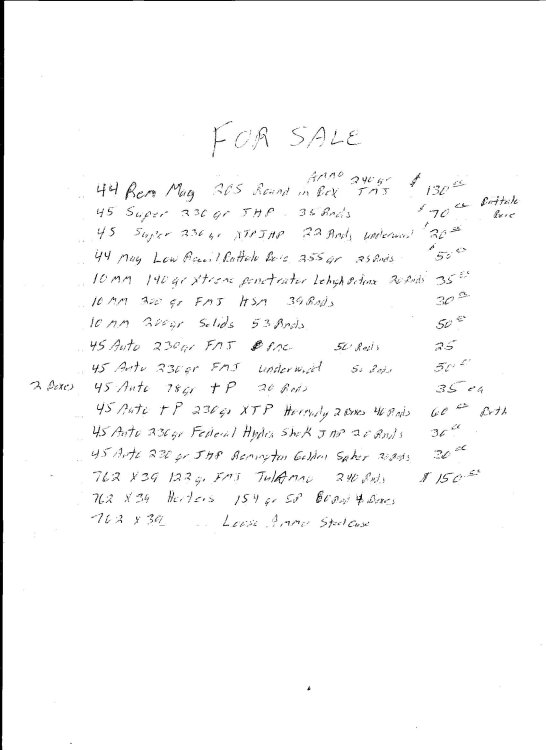 FOR SALE
44 Rem Mag 205 Round in Box Ammo 240 gr TMJ $ 130 00
45 Super 230 gr JHP 35 Rnds $ 70 00 Buffalo Bore
45 Super 230 gr XTP JHP 22 Rnds underwood $ 20 00
44 Mag Low Recoil Buffalo Bore 255 gr 25 Rnds $ 50 00
10 MM 140 gr Xtreme penetrator Lehigh Defense 20 Rnds 35 00
10 MM 200 gr FMJ HSM 39 Rnds 30 00
10 MM 200 gr Solids 53 Rnds 50 00
45 Auto 230 gr FMJ PMC 50 Rnds 25
45 Auto 230 gr FMJ underwood 50 Rnds 50 00
2 Boxes 45 Auto 78 gr + P 20 Rnds 35 ea
45 Auto + P 230 gr XTP Hornady 2 Boxes 40 Rnds 60 00 Both
45 Auto 230 gr Federal Hydra Shok JHP 20 Rnds 30 00
45 Auto 230 gr JHP Remington Golden Saber 20 Rnds 30 00
762 X 39 122 gr FMJ TulAmmo 240 Rnds $ 150 00
762 X 39 Herters 154 gr SP 80 Rnd 4 Boxes
762 X 39 Loose Ammo Steel Case